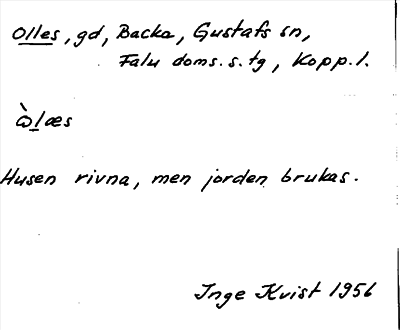 Olles, gd, Backa, Gustafs sn,
Falu doms. s. tg, Kopp. l.
ὼlæs
Husen rivna, men jorden brukas.
Inge Kvist 1956